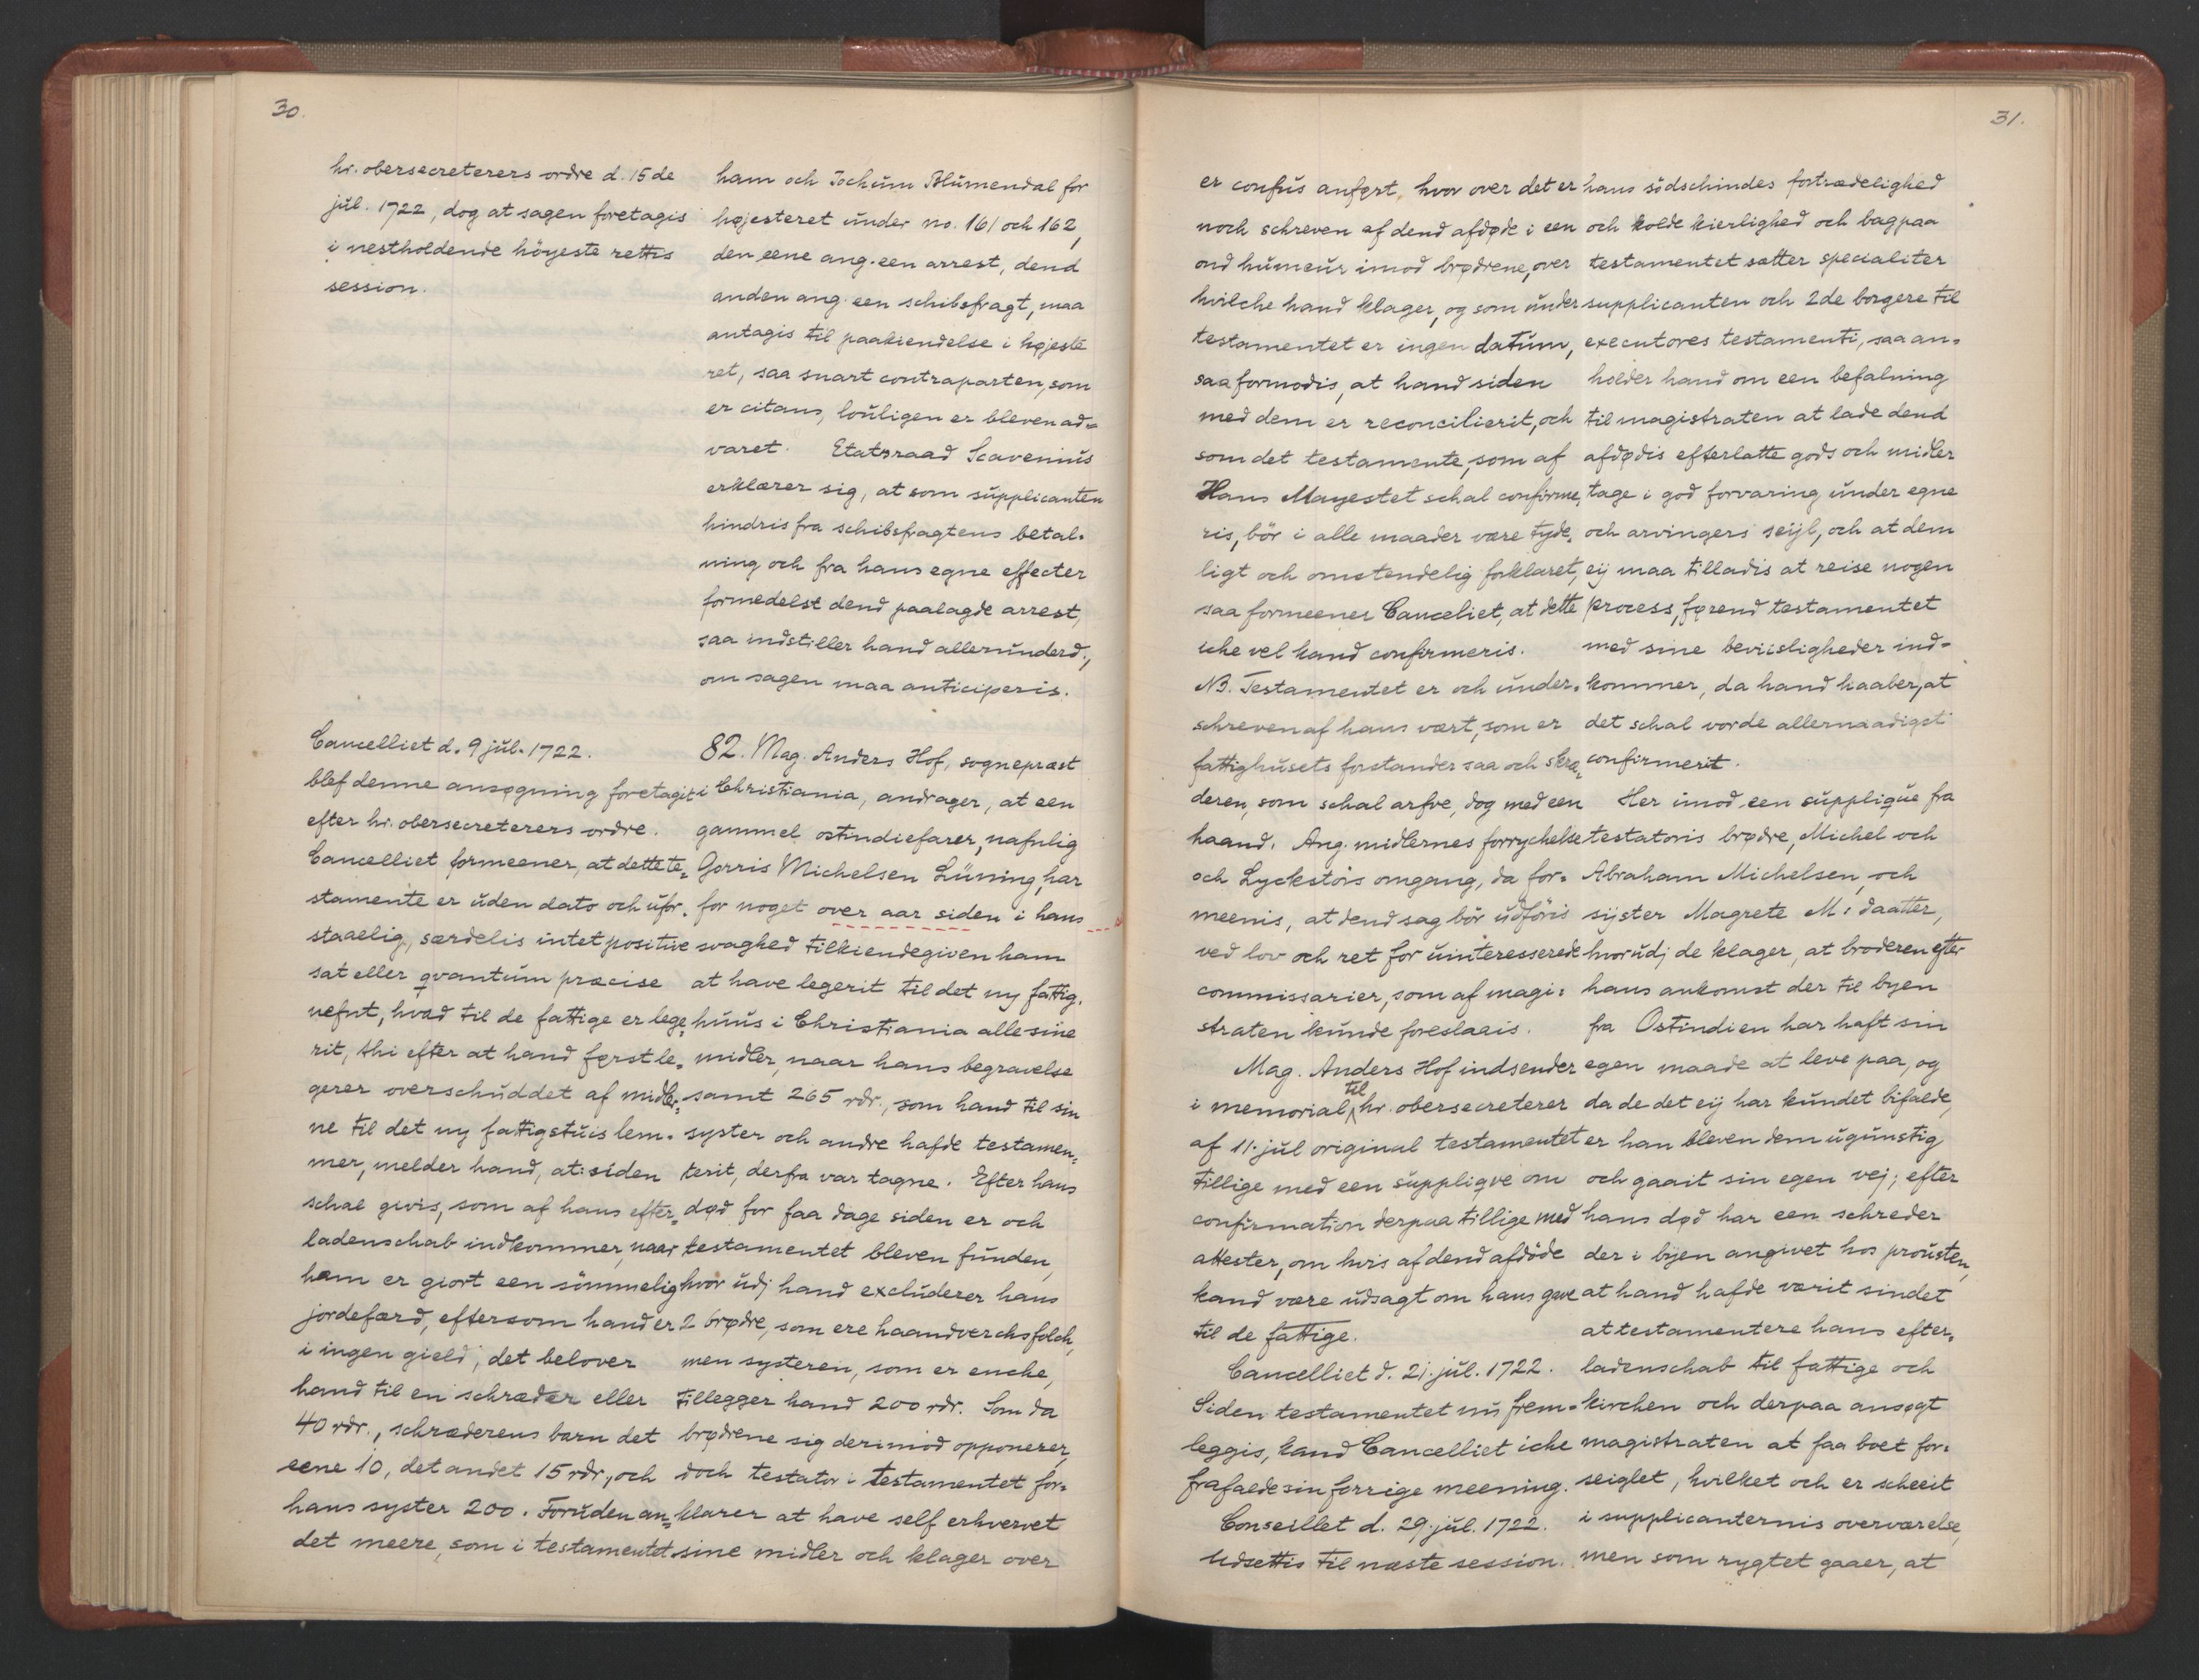 30.
hr. obersecreterers ordre d. 15de
jŭl. 1722, dog at sagen foretagis
i nestholdende höyeste rettis
session.
ham och Jochŭm Blŭmendal for
højesteret ŭnder no. 161 och 162,
den eene ang. een arrest, dend
anden ang. een schibsfragt, maa
antagis til paakiendelse i højeste
ret, saa snart contraparten, som
er citans, loŭligen er bleven ad=
varet. Etatsraad Scaveniŭs
erklærer sig, at som sŭpplicanten
hindris fra schibsfragtens betal-
ning och fra hans egne effecter
formedelst dend paalagde arrest,
saa indstiller hand allerŭnderd.,
om sagen maa anticiperis.
Cancelliet d. 9 jŭl. 1722.
blef denne ansøgning foretagit
efter hr. obersecreterers ordre.
Cancelliet formeener, at dette te=
stamente er ŭden dato och ŭfor-
staaelig, særdelis intet positive
sat eller qvantŭm præcise
nefnt, hvad til de fattige er lege
rit, thi efter at hand først le-
gerer overschŭddet af midler-
ne til det ny fattigstŭis lem-
mer, melder hand, at: siden
schal givis, som af hans efter-
ladenschab indkommer, naar
ham er giort een sömmelig
jordefærd, eftersom hand er
i ingen gield, det belover
hand til en schræder eller
40 rdr., schræderens barn det
eene 10, det andet 15 rdr., och
hans syster 200. Forŭden an=
det meere, som i testamentet
82. Mag. Anders Hof, sognepræst
i Christiania, andrager, at een
gammel ostindiefarer, nafnlig
Gorris Michelsen Lŭning, har
for noget over aar siden i hans
svaghed tilkiendegiven ham
at have legerit til det ny fattig-
hŭŭs i Christiania alle sine
midler, naar hans begravelse
samt 265 rdr., som hand til sin
syster och andre hafde testamen-
terit, derfra var tagne. Efter hans
død for faa dage siden er och
testamentet bleven fŭnden,
hvor ŭdj hand exclŭderer hans
2 brødre, som ere haandverchsfolch,
men systeren, som er enche,
tillegger hand 200 rdr. Som da
brødrene sig derimod opponerer,
doch testator i testamentet for-
klarer at have self erhvervet
sine midler och klager over
31.
er confŭs anført, hvor over det er
noch schreven af dend afdøde i een
ond hŭmeŭr imod brødrene, over
hvilche hand klager, og som ŭnder
testamentet er ingen datŭm,
saa formodis, at hand siden
med dem er reconcilierit, och
som det testamente, som af
Hans Mayestet schal confirme-
ris, bör i alle maader være tyde-
ligt och omstendelig forklaret,
saa formeener Canceliet, at dette
iche vel kand confirmeris.
NB. Testamentet er och ŭnder-
schreven af hans vært, som er
fattighŭsets forstander saa och skræ-
deren, som schal arfve, dog med een
haand. Ang. midlernes forrychelse
och Lyckstörs omgang, da for-
meenis, at dend sag bör ŭdföris
ved lov och ret for ŭinteresserede
commissarier, som af magi-
straten kŭnde foreslaais.
Mag. Anders Hof indsender
i memorial til hr. obersecreterer
af 11. jŭl original testamentet
tillige med een sŭppliqve om
confirmation derpaa tillige med
attester, om hvis af dend afdöde
kand være ŭdsagt om hans gave
til de fattige.
Cancelliet d. 21. jŭl. 1722.
Siden testamentet nŭ frem-
leggis, kand Cancelliet iche
frafalde sin forrige meening.
Conseillet d. 29. jŭl. 1722.
Udsettis til næste session.
hans södschindes fortrædelighed
och kolde kierlighed och bagpaa
testamentet sætter specialiter
supplicanten och 2de borgere til
executores testamenti, saa an-
holder hand om een befalning
til magistraten at lade dend
afdødis efterlatte gods och midler
tage i god forvaring ŭnder egne
och arvingers seijl, och at dem
eij maa tilladis at reise nogen
process, førend testamentet
med sine beviisligheder ind-
kommer, da hand haaber, at
det schal vorde allernaadigst
confirmerit.
Her imod een sŭppliqŭe fra
testatoris brødre, Michel och
Abraham Michelsen, och
sijster Magrete M: daatter,
hvorŭdj de klager, at broderen efter
hans ankomst der til byen
fra Ostindien har haft sin
egen maade at leve paa, og
da de det eij har kŭndet bifalde,
er han bleven dem ŭgŭnstig
och gaait sin egen vej; efter
hans død har een schreder
der i bijen angivet hos proŭsten,
at hand hafde værit sindet
at testamentere hans efter-
ladenschab til fattige och
kirchen och derpaa ansøgt
magistraten at faa boet for-
seiglet, hvilket och er scheeit
i sŭpplicanternis overværelse,
men som rygtet gaaer, at